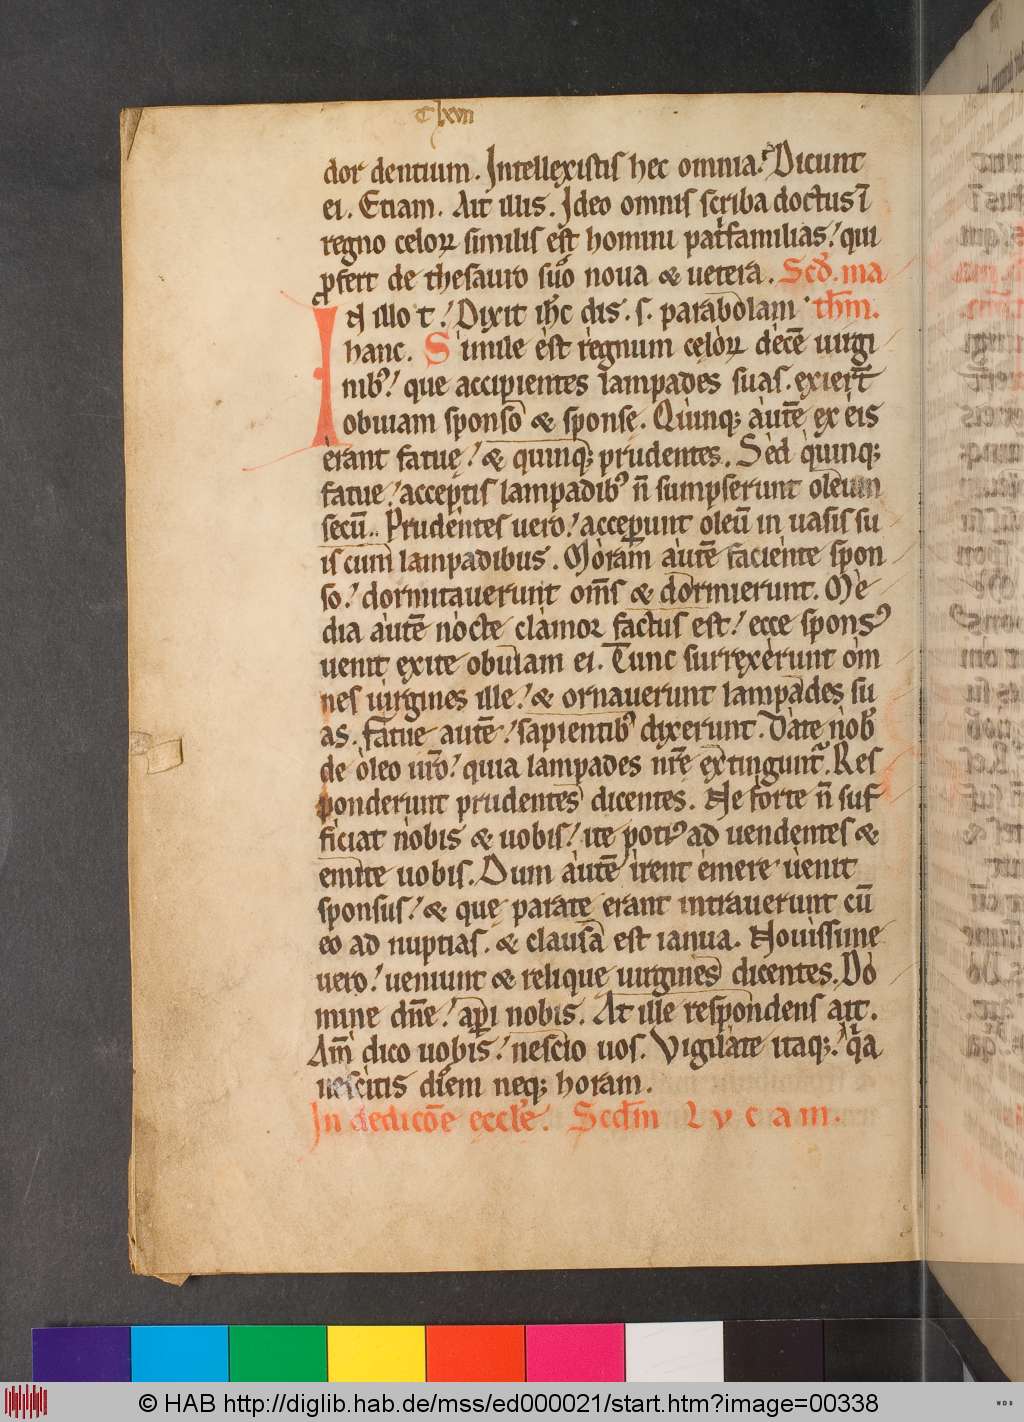 Clxvii
dor dentium. Intellexistis hec omnia? Dicunt
ei. Etiam. Ait illis. Ideo omnis scriba doctus ī
regno celoꝝ similis est homini pat̄familias! qui
ꝓfert de thesauro suo noua & uetera. Scd̄. ma
N illo t̄! Dixit ih̄c dis. s. parabolam th̄m.
hanc. Simile est regnum celoꝝ decē uirgi
nibꝰ! que accipientes lampades suas. exiert̄
obuiam sponso & sponse. Quinqꝫ autē ex eis
erant fatue! & quinqꝫ prudentes. Sed quinqꝫ
fatue! acceptis lampadibꝰ n̄ sumpserunt oleum
secū. Prudentes uero! acceperunt oleū in uasis su
is cum lampadibus. Moram autē faciente spon
so! dormitauerunt om̄s & dormierunt. Me
dia autē nocte clamor factus est! ecce sponsꝰ
uenit exite obuiam ei. Tunc surrexerunt om
nes uirgines ille! & ornauerunt lampades su
as. fatue autē! sapientibꝰ dixerunt. Date nobꝰ
de oleo ur̄o! quia lampades nr̄e extingunt̄. Res
ponderunt prudentes dicentes. Ne forte n̄ suf
ficiat nobis & uobis! ite potiꝰ ad uendentes &
emite uobis. Dum autē irent emere uenit
sponsus! & que parate erant intrauerunt cū
eo ad nuptias. & clausa est ianua. Nouissime
uero! ueniunt & relique uirgines dicentes. Do
mine dn̄e! aperi nobis. At ille respondens ait.
Am̄ dico uobis! nescio uos. Vigilate itaqꝫ! qa
nescitis diem neqꝫ horam.
In dedicōe eccl̄e. Scdm̄ Lvcam.
© HAB http://diglib.hab.de/mss/ed000021/start.htm?image=00338